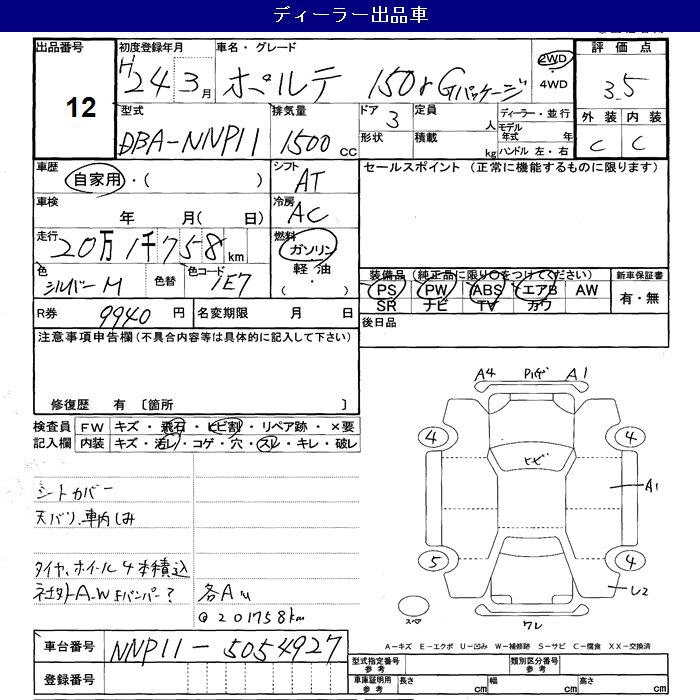 ディーラー出品車
出品番号
12
初度登録年月
H24 3月
車名・グレード
ポルテ 150r Gパッケージ
2WD
4WD
評価点
3.5
外装 内装
C C
型式
DBA-NNP11
排気量
1500 cc
ドア 3
形状
定員 人
積載 kg
ディーラー・並行
モデル年式 年
ハンドル 左・右
車歴
自家用・( )
シフト
AT
セールスポイント (正常に機能するものに限ります)
車検
年 月( 日)
冷房
AC
走行
20万1千758km
燃料
ガソリン
軽油
( ・ )
色
シルバーM
色替
色コード
1E7
装備品(純正品に限り○をつけてください)
PS PW ABS エアB AW
SR ナビ TV カワ
新車保証書
有・無
R券 9940 円
名変期限 月 日
後日品
注意事項申告欄(不具合内容等は具体的に記入して下さい)
修復歴 有 〔箇所 〕
検査員
記入欄
FW キズ・飛石・ヒビ割・リペア跡・×要
内装 キズ・汚レ・コゲ・穴・スレ・キレ・破レ
シートカバー
天バリ、車内しみ
タイヤ、ホイール4本積込
社外A.W Fバンパー?
各AU
@201758km
A4 ハゲ A1
4 4
ヒビ
A1
5 4
スペア
ワレ
車台番号
NNP11-5054927
登録番号
A-キズ E-エクボ U-凹み W-補修跡 S-サビ C-腐食 XX-交換済
型式指定番号
参考
類別区分番号
参考
車庫証明用
参考
長さ cm
幅 cm
高さ cm